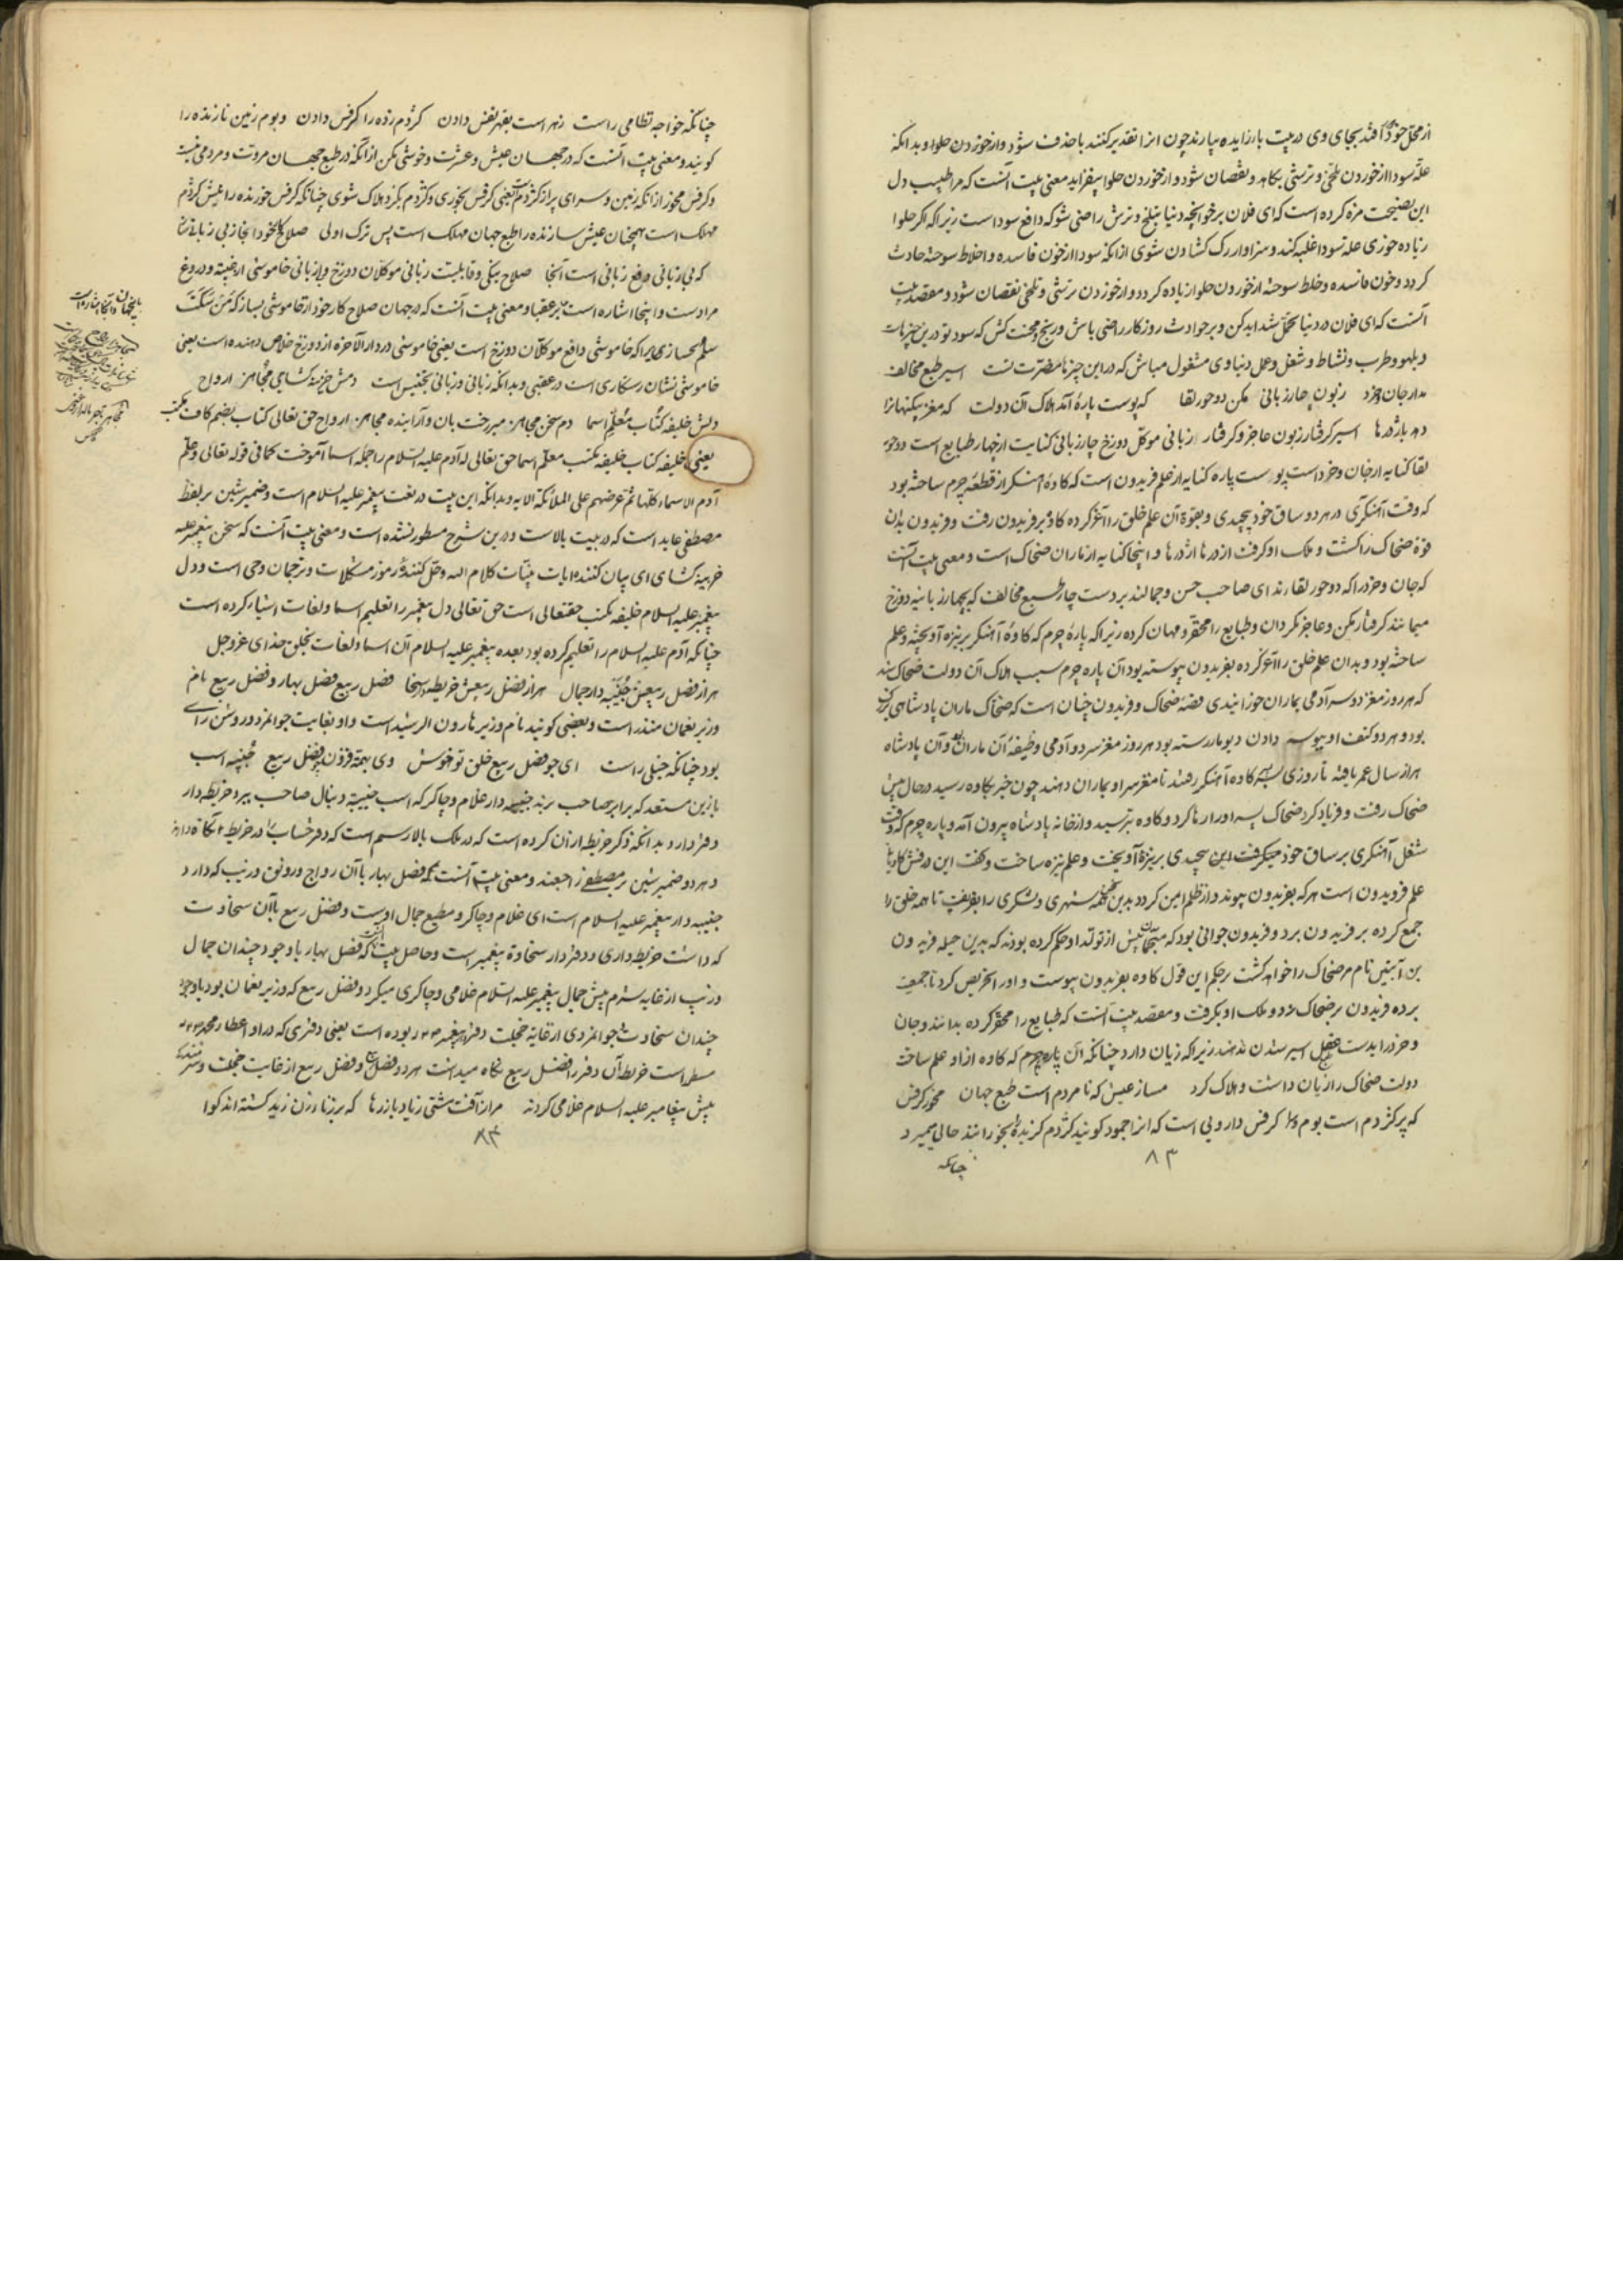 از محل خود افتد بجای وی در بیت باز زاید بیارند چون انرا تقدیر کنند با حذف شود و از خوردن حلوا و بدانکه
علة سودا از خوردن تلخی و ترشی بکاهد و نقصان شود و از خوردن حلوا بیفزاید معنی بیت آنست که مرا طبیب دل
این نصیحت مزه کرده است که ای فلان بر خوانچه دنیا بتلخ و ترش راضی شو که دافع سودا است زیرا که اگر حلوا
زیاده خوری علة سودا غلبه کند و سزاوار رگ کشادن شوی از انکه سودا از خون فاسده و اخلاط سوخته حادث
گردد و خون فاسده و خلط سوخته از خوردن حلوا زیاده گردد و از خوردن ترشی و تلخی نقصان شود و مقصد بیت
آنست که ای فلان در دنیا تحمل شداید کن و بر حوادث روزگار راضی باش و رنج و محنت کش که سود تو درین چیزهاست
و بلهو و طرب و نشاط و شغل و عمل دنیاوی مشغول مباش که در این چیزها مضرت تست اسیر طبع مخالف
مدار جان و خرد زبون چار زبانی مکن دو حور لقا که پوست پارهٔ آمد هلاک آن دولت که مغز بیگنهانرا
دهد باژدرها اسیر گرفتار زبون عاجز و گرفتار زبانی موکل دوزخ چار زبانی کنایت از چهار طبایع است دو حور
لقا کنایه از جان و خرد است پوست پاره کنایه از علم فریدون است که کاوهٔ آهنگر از قطعهٔ چرم ساخته بود
که وقت آهنگری در هر دو ساق خود پیچیدی و بقوة آن علم خلق را اغر کرده کاوه بر فریدون رفت و فریدون بدان
قوة ضحاک را کشت و ملک او گرفت اژدرها اژدرها و اینجا کنایه از ماران ضحاک است و معنی بیت آنست
که جان و خرد را که دو حور لقااند ای صاحب حسن و جمالند بر دست چار طبع مخالف که بچهار زبانیه دوزخ
میمانند گرفتار مکن و عاجز مگردان و طبایع را محقر و مهان کرده زیرا که پارهٔ چرم که کاوهٔ آهنگر بر نیزه آویخته و علم
ساخته بود و بدان علم خلق را اغر کرده بفریدون پیوسته بود آن پاره چرم سبب هلاک آن دولت ضحاک شد
که هر روز مغز دو سر آدمی بماران خورانیدی قصهٔ ضحاک و فریدون چنان است که ضحاک ماران پادشاهی بزرگ
بود و هر دو کتف او بوسه دادن دیو مار رسته بود هر روز مغز سر دو آدمی وظیفهٔ آن ماران بود و آن پادشاه
هزار سال عمر یافته تا روزی پسر کاوه آهنگر گرفتند تا مغز سر او بماران دهند چون خبر بکاوه رسید در حال پیش
ضحاک رفت و فریاد کرد ضحاک پسر او را رها کرد و کاوه بترسید و از خانه پادشاه بیرون آمد و پاره چرم که وقت
شغل آهنگری بر ساق خود میگرفت این پیچیدی بر نیزه آویخت و علم نیزه ساخت و گفت این درفش کاویان
علم فریدون است هر که بفریدون پیوند و از ظلم امین گردد بدین شهری و لشکری را بفریفت تا همه خلق را
جمع کرده بر فریدون برد و فریدون جوانی بود که منجمان پیش از تولد او حکم کرده بودند که بدین حیله فریدون
بن آبتین نام مر ضحاک را خواهد کشت بر حکم این قول کاوه بفریدون پیوست و او را تحریص کرد تا جمعیت
برده فریدون بر ضحاک زد و ملک او بگرفت و مقصد بیت آنست که طبایع را محقر کرده بدانند و جان
و خرد را بدست عقل اسیر شدن ندهند زیرا که زیان دارد چنانکه آن پاره چرم که کاوه از او علم ساخت
دولت ضحاک را زیان داشت و هلاک کرد مساز عیش که نامردم است طبع جهان مخور کرفس
که پر کژدم است بوم و سرا کرفس دارویی است که انرا اجمود گویند کژدم گزیده بخورانند حالی بمیرد
۸۳
چنانکه
چنانکه خواجه نظامی راست زهر است بقهر نفس دادن کژدم زده را کرفس دادن و بوم زمین نازنده را
گویند و معنی بیت آنست که در جهان عیش و عشرت و خوشی مکن از آنکه در طبع جهان مروت و مردمی نیست
و کرفس مخور از انکه زمین و سرای پر از کژدم است یعنی کرفس بخوری و کژدم بگزد هلاک شوی چنانکه کرفس خورنده را نیش کژدم
مهلک است همچنان عیش سازنده را طبع جهان مهلک است پس ترک اولی صلاح کار خود اینجا ز بی زبانی ساز
که بی زبانی دفع زبانی است آنجا صلاح نیکی و قابلیت زبانی موکلان دوزخ و از بی زبانی خاموشی از غیبة و دروغ
مراد ست و اینجا اشاره است بر عقبا و معنی بیت آنست که در جهان صلاح کار خود از خاموشی بساز که من سکت
سلم بسازی زیرا که خاموشی دافع موکلان دوزخ است یعنی خاموشی در دار الآخره از دوزخ خلاص دهنده است یعنی
خاموشی نشان رستگاری است در عقبی و بدانکه زبانی و زبانی تجنیس است دمش خزینه گشای مجاهز ارواح
دلش خلیفه کتاب معلم اسما دم سخن مجاهز ارواح حق تعالی کتاب بضم کاف مکتب
یعنی خلیفه کتاب خلیفه مکتب معلم اسما حق تعالی که آدم علیه السلام را جمله اسما آموخت کما فی قوله تعالی و علم
آدم الاسماء کلها ثم عرضهم علی الملائکة الایه و بدانکه این بیت در نعت پیغمبر علیه السلام است و ضمیر شین بر لفظ
مصطفی عاید است که در بیت بالاست و درین شرح مسطور نشده است و معنی بیت آنست که سخن پیغمبر علیه
خزینه گشای ای بیان کننده آیات بینات کلام الله و حل کنندهٔ رموز مشکلات و ترجمان وحی است و دل
پیغمبر علیه السلام خلیفه مکتب حقتعالی است حق تعالی دل پیغمبر را تعلیم اسما و لغات اشیاء کرده است
چنانکه آدم علیه السلام را تعلیم کرده بود بعده پیغمبر علیه السلام آن اسما و لغات بخلق خدای عز و جل
هزار فصل ربیعش جنیبه دار جمال هزار فضل ربیعش خریطه دار سخا فصل ربیع فصل بهار و فضل ربیع نام
وزیر نعمان منذر است و بعضی گویند نام وزیر هارون الرشید است و او بغایت جوانمرد و روشن رای
بود چنانکه جبلی راست ای چو فصل ربیع خلق تو خوش وی بهمة فزون ز فضل ربیع جنیبه اسب
با زین مستعد که برابر صاحب برند جنیبه دار غلام و چاکر که اسب جنیبة دنبال صاحب ببرد خریطه دار
دفتر دار و بدانکه ذکر خریطه از آن کرده است که در ملک بالا رسم است که دفتر حساب را در خریطه نگاه دارند
و هر دو ضمیر شین بر مصطفی راجعند و معنی بیت آنست که فصل بهار با آن رواج و رونق و زیب که دارد
جنیبه دار پیغمبر علیه السلام است ای غلام و چاکر و مطیع جمال اوست و فضل ربیع با آن سخاوت
که داشت خریطه داری و دفتر دار سخاوة پیغمبر است و حاصل بیت آنست که فصل بهار با وجود چندان جمال
و زیب از غایه شرم پیش جمال پیغمبر علیه السلام غلامی و چاکری میکرد و فضل ربیع که وزیر نعمان بود با وجود
چندان سخاوت و جوانمردی از غایة خجلت دفتردار پیغمبر بوده است یعنی دفتری که در او عطار محمد
مسطور است خریطه آن دفتر را فضل ربیع نگاه میداشت هر دو فصل ربیع و فضل ربیع از غایت خجلت و شرمندگی
پیش پیغامبر علیه السلام غلامی کردند مرا ز آفت مشتی زیاد باز رها که بر زنا زن زید گشته اند گوا
۸۴